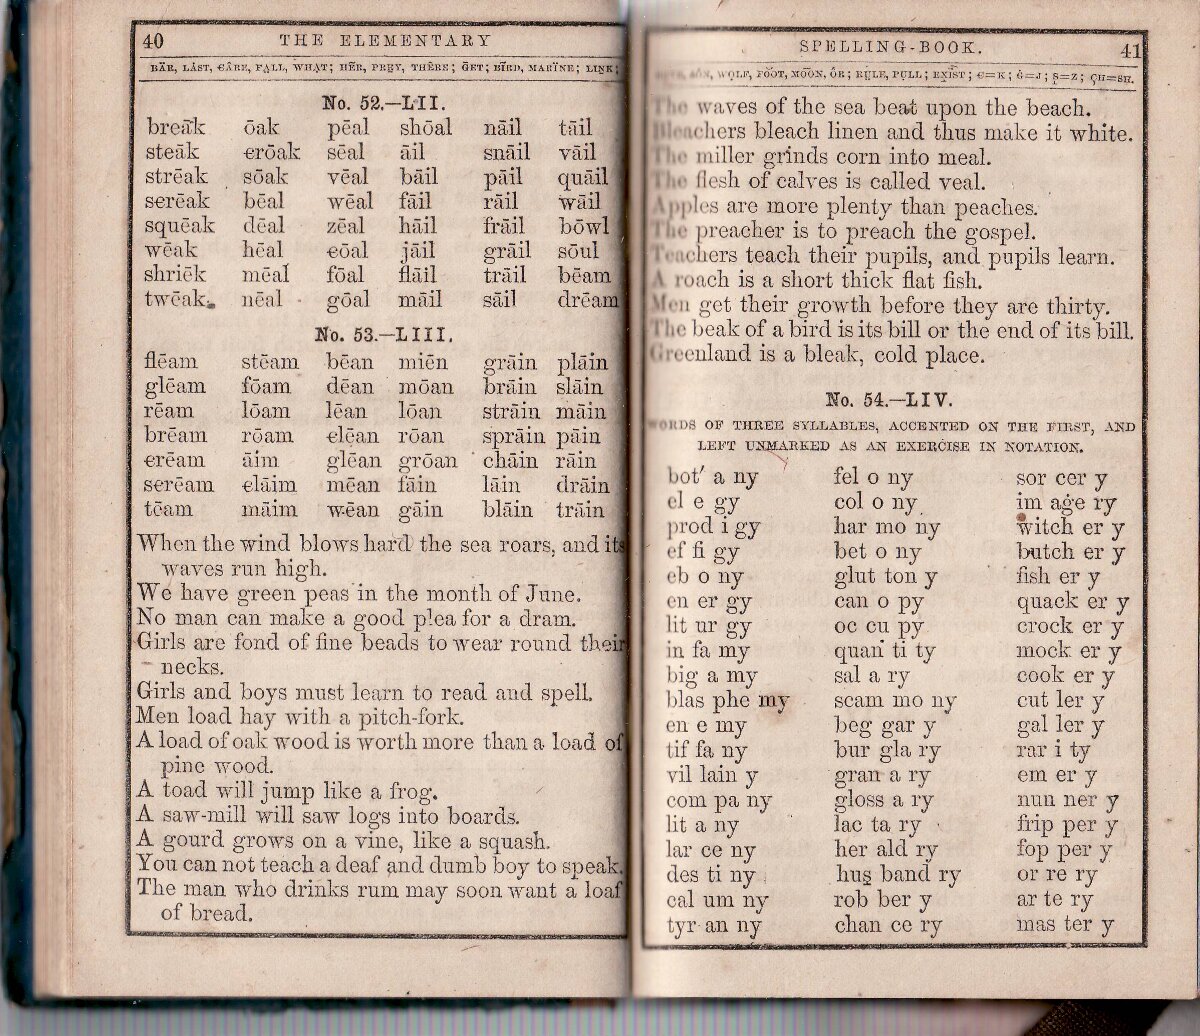 40 THE ELEMENTARY
BÄR, LÅST, CÂRE, FALL, WHAT; HẼR, PREY, THÊRE; GET; BÏRD, MARÏNE; LINK;
No. 52.—LII.
breāk ōak pēal shōal nāil tāil
steāk crōak sēal āil snāil vāil
strēak sōak vēal bāil pāil quāil
screak bēal wēal fāil rāil wāil
squēak dēal zēal hāil frāil bōwl
wēak hēal cōal jāil grāil sōul
shriēk mēal fōal flāil trāil bēam
twēak nēal gōal māil sāil drēam
No. 53.—LIII.
flēam stēam bēan miēn grāin plāin
glēam fōam dēan mōan brāin slāin
rēam lōam lēan lōan strāin māin
brēam rōam clēan rōan sprāin pāin
crēam āim glēan grōan chāin rāin
scrēam clāim mēan fāin lāin drāin
tēam māim wēan gāin blāin trāin
When the wind blows hard the sea roars, and its
waves run high.
We have green peas in the month of June.
No man can make a good plea for a dram.
Girls are fond of fine beads to wear round their
necks.
Girls and boys must learn to read and spell.
Men load hay with a pitch-fork.
A load of oak wood is worth more than a load of
pine wood.
A toad will jump like a frog.
A saw-mill will saw logs into boards.
A gourd grows on a vine, like a squash.
You can not teach a deaf and dumb boy to speak.
The man who drinks rum may soon want a loaf
of bread.
SPELLING-BOOK. 41
WOLF, FOOT, MOON, ÔR; RULE, PULL; EXIST; C=K; G=J; S=Z; CH=SH.
The waves of the sea beat upon the beach.
Bleachers bleach linen and thus make it white.
The miller grinds corn into meal.
The flesh of calves is called veal.
Apples are more plenty than peaches.
The preacher is to preach the gospel.
Teachers teach their pupils, and pupils learn.
A roach is a short thick flat fish.
Men get their growth before they are thirty.
The beak of a bird is its bill or the end of its bill.
Greenland is a bleak, cold place.
No. 54.—LIV.
WORDS OF THREE SYLLABLES, ACCENTED ON THE FIRST, AND
LEFT UNMARKED AS AN EXERCISE IN NOTATION.
bot′ a ny fel o ny sor cer y
el e gy col o ny im age ry
prod i gy har mo ny witch er y
ef fi gy bet o ny butch er y
eb o ny glut ton y fish er y
en er gy can o py quack er y
lit ur gy oc cu py crock er y
in fa my quan ti ty mock er y
big a my sal a ry cook er y
blas phe my scam mo ny cut ler y
en e my beg gar y gal ler y
tif fa ny bur gla ry rar i ty
vil lain y gran a ry em er y
com pa ny gloss a ry nun ner y
lit a ny lac ta ry frip per y
lar ce ny her ald ry fop per y
des ti ny hus band ry or re ry
cal um ny rob ber y ar te ry
tyr an ny chan ce ry mas ter y